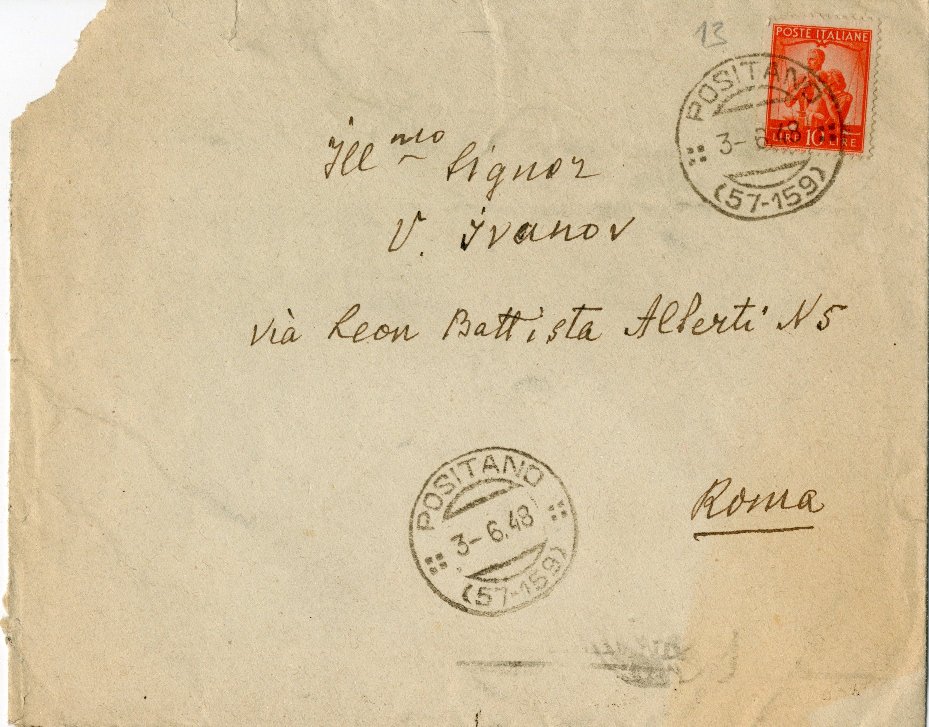 13
POSTE ITALIANE
LIRE 10 LIRE
POSITANO
3-6.48
(57-159)
Ill mo Signor
V. Ivanov
via Leon Battista Alberti N5
POSITANO
3-6.48
(57-159)
Roma